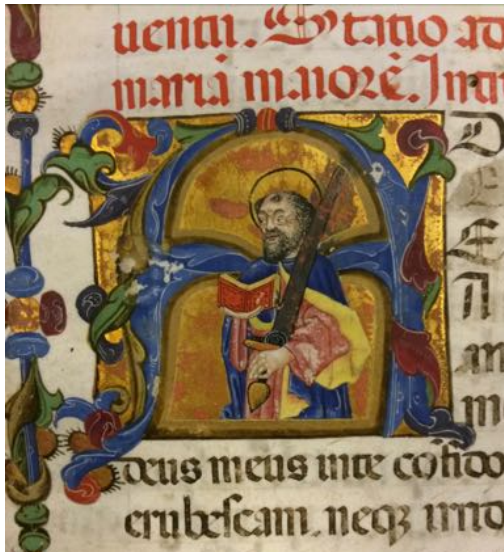 uentu. Statio ad
mariā maiorē. Intr
A D
E
an
m
deus meus inte cōfido
erubescam. neqꝫ irrid